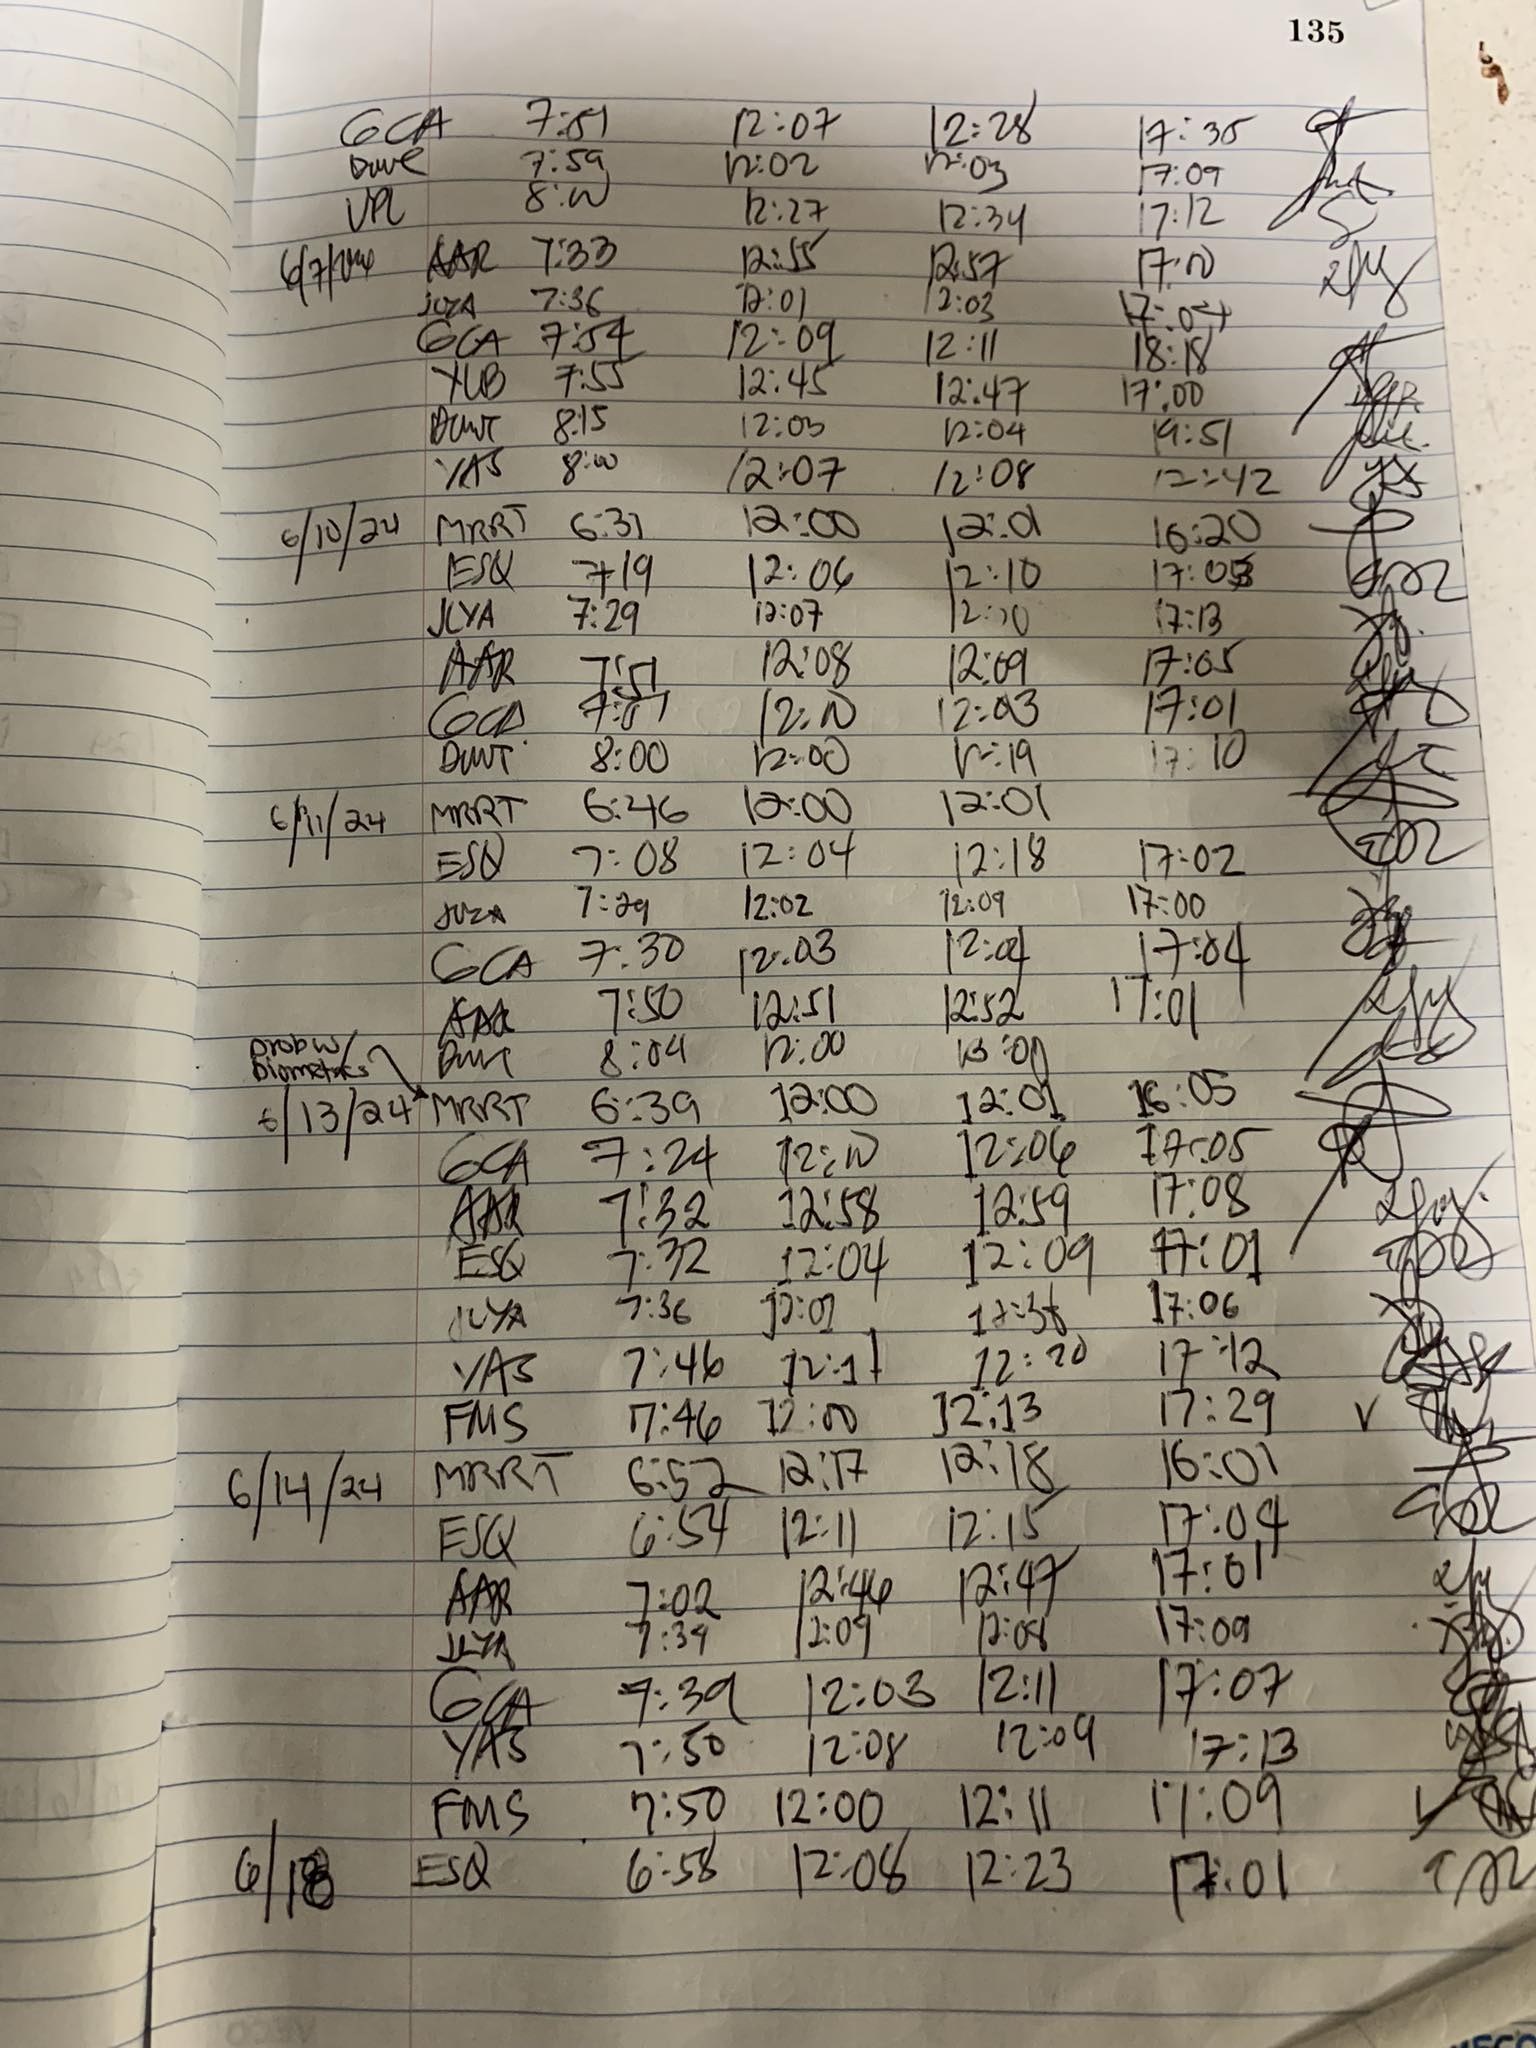 135
GCA 7:51 12:07 12:28 17:35
7:59 12:02 12:03 17:09
8:00 12:27 12:34 17:12
AAR 7:33 12:55 12:57 17:10
7:36 12:01 12:03 17:04
GCA 7:54 12:09 12:11 18:18
YUB 7:55 12:45 12:47 17:00
8:15 12:03 12:04 19:51
YAS 8:00 12:07 12:08 12:42
6/10/24 MRRT 6:31 12:00 12:01 16:20
ESQ 7:19 12:06 12:10
JLYA 7:29 12:07 17:13
AAR 7:51 12:08 12:09 17:05
GCA 12:03 17:01
8:00 12:00 12:19 17:10
6/11/24 MRRT 6:46 12:00 12:01
ESQ 7:08 12:04 12:18 17:02
7:29 12:02 12:09 17:00
GCA 7:30 12:03 12:04 17:04
AAR 7:50 12:51 12:52 17:01
Prob w/
Biometrics
8:04 12:00
6/13/24 MRRT 6:39 12:00 12:01 16:05
GCA 7:24 12:06 17:05
AAR 7:32 12:58 12:59 17:08
ESQ 7:32 12:04 12:09 17:01
JLYA 7:36 12:01 12:38 17:06
YAS 7:46 12:11 12:20 17:12
FMS 7:46 12:00 12:13 17:29
6/14/24 MRRT 6:52 12:17 12:18 16:01
ESQ 6:54 12:11 12:15 17:04
AAR 7:02 12:46 12:47 17:01
JLYA 7:39 12:08 17:09
GCA 7:39 12:03 12:11 17:07
YAS 7:50 12:08 12:09 17:13
FMS 7:50 12:00 12:11 17:09
6/18 ESQ 6:58 12:08 12:23 17:01